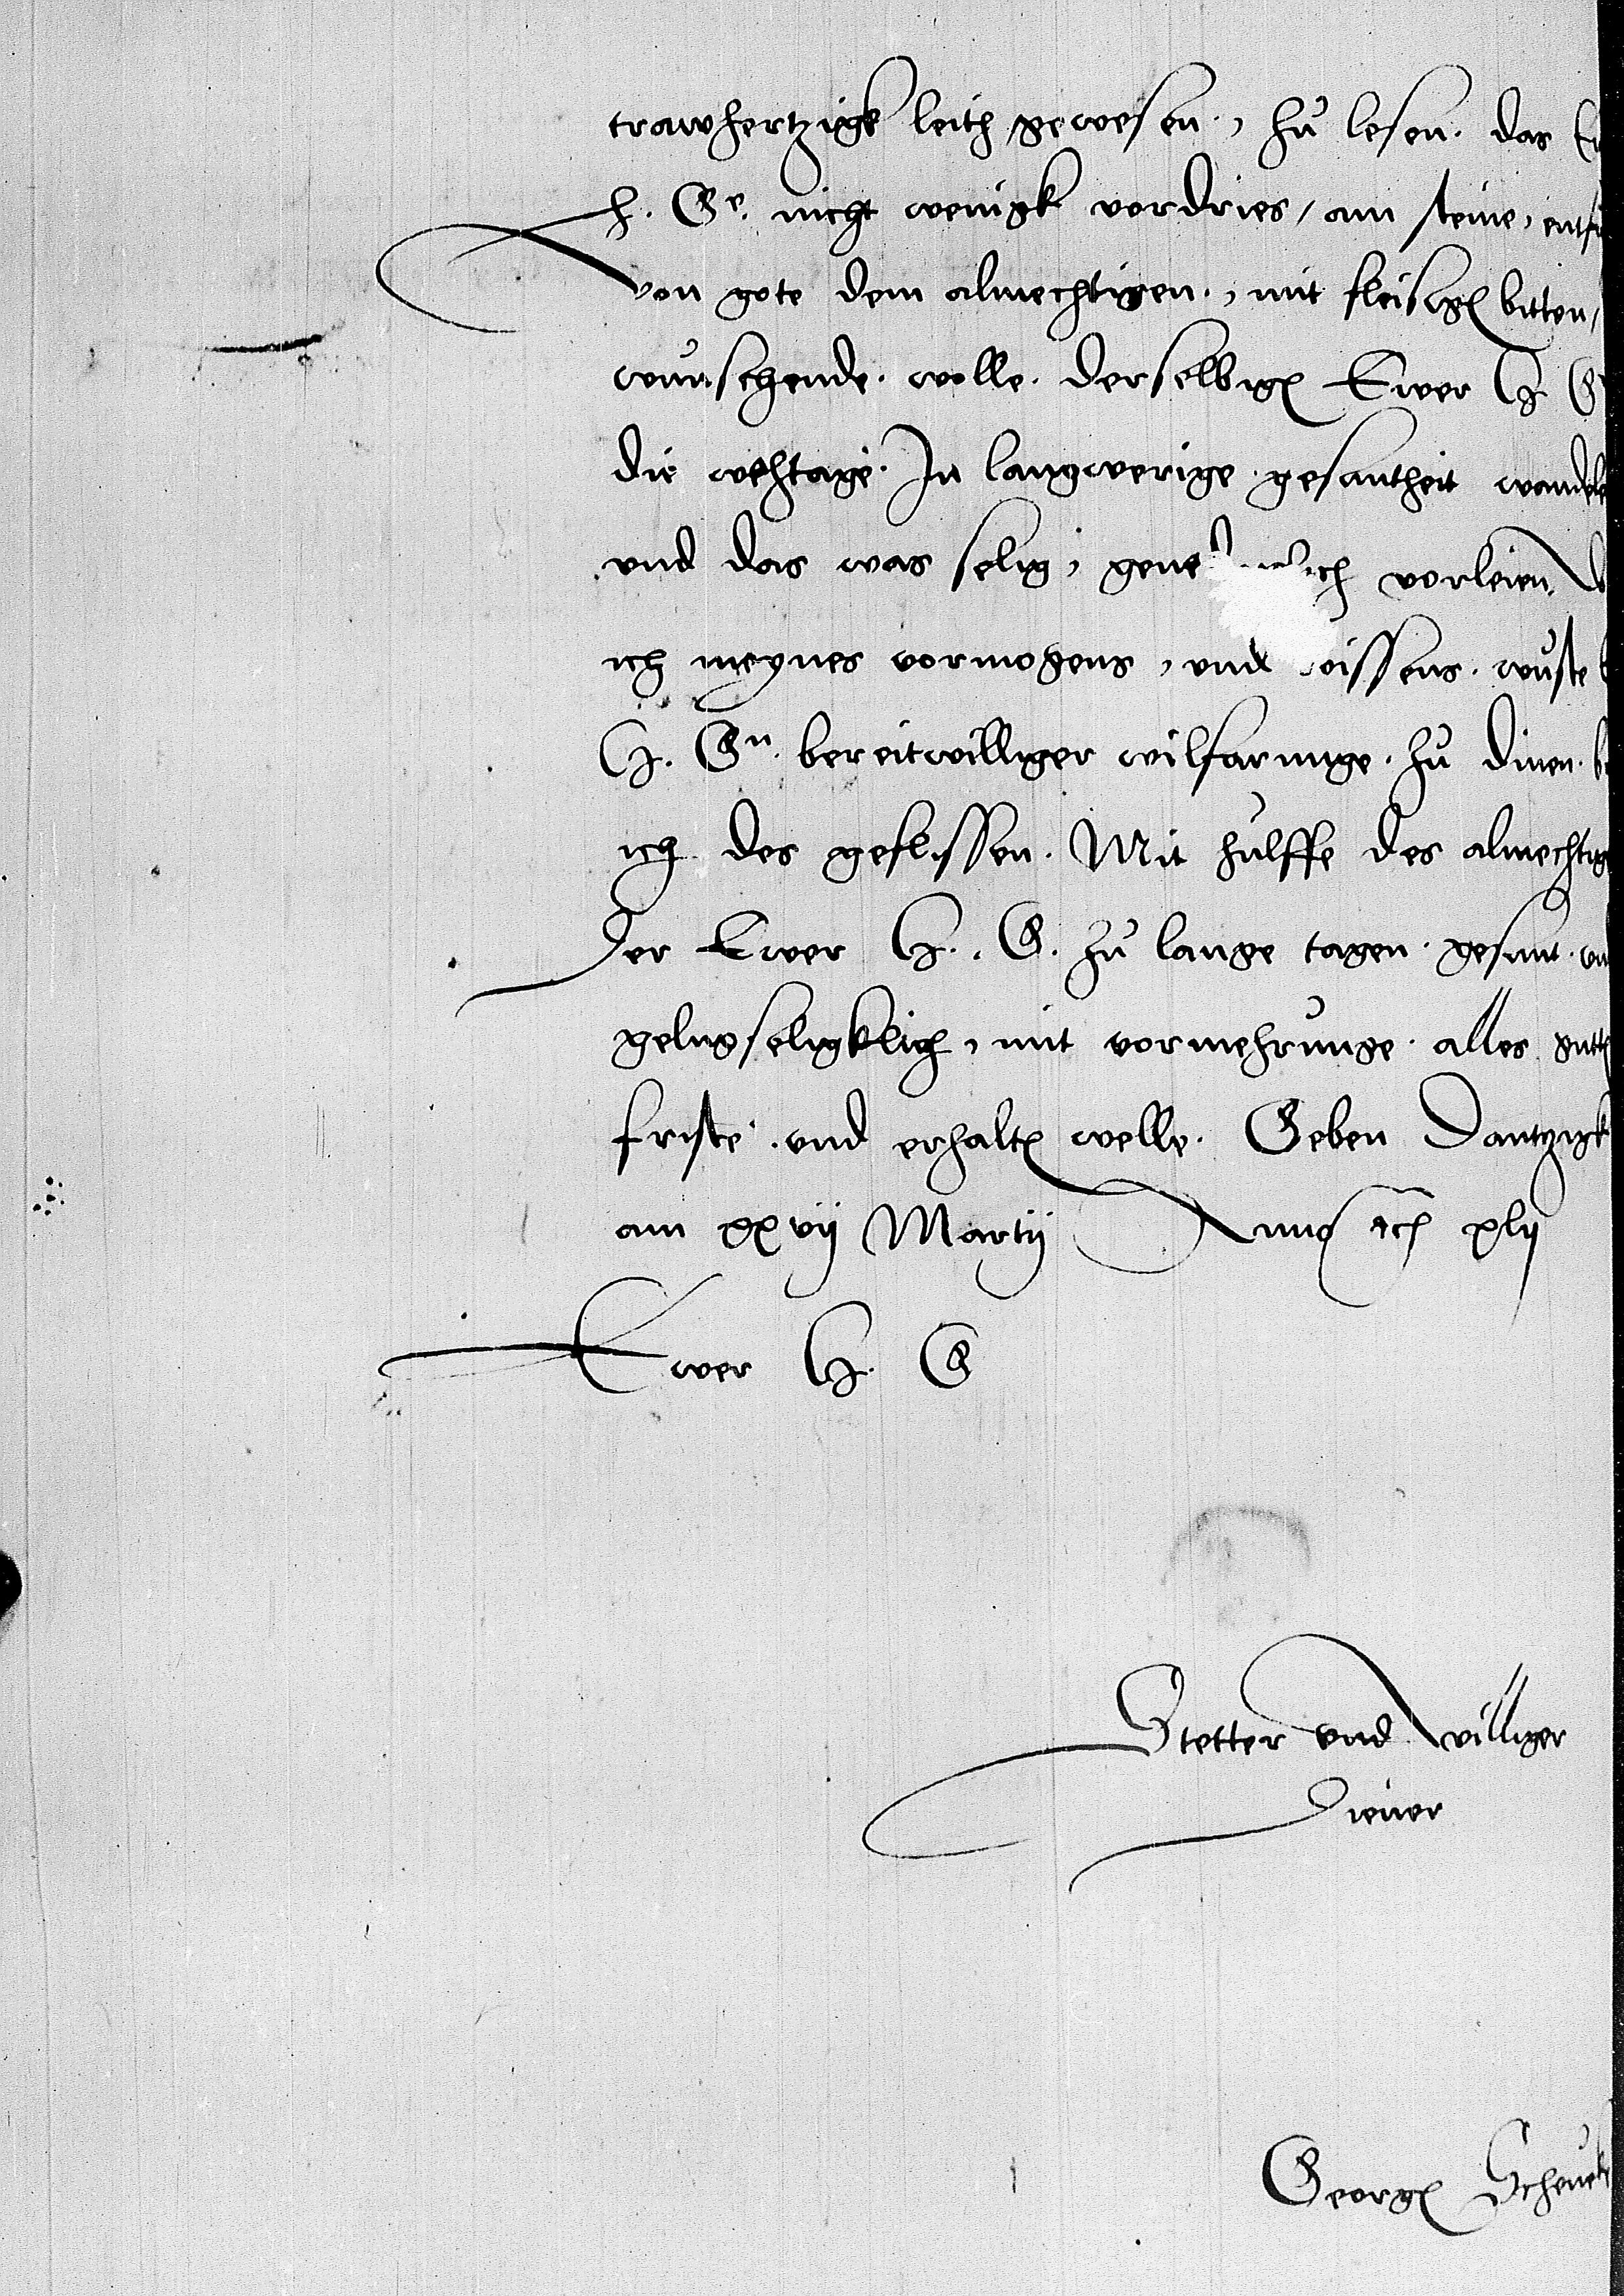 trawhertzigk leith gewesen, zu lesen. das
h. Ge. nicht wenigk vordries, am steine,
von gote dem almechtigen, mit fleisigen bitten,
wunschende. wolle. derselbigen Ewer H. G
die wehtage. In langwerige. gesuntheit
und das was selig, vorleien.
ich meynes vormogens, und wissens. wuste
H. Gn. bereitwilliger wilfarunge. zu dinen.
ich des geflissen. Mit hulffe des
Der Ewer H. G. zu lange tagen. gesunt.
gelugseligklich, mit vormehrunge. alles
friste. und erhalten welle. Geben Dantzigk
am xxvij Martij Anno etc xlij
Ewer H. G
Stetter und williger
Diener
Georgen